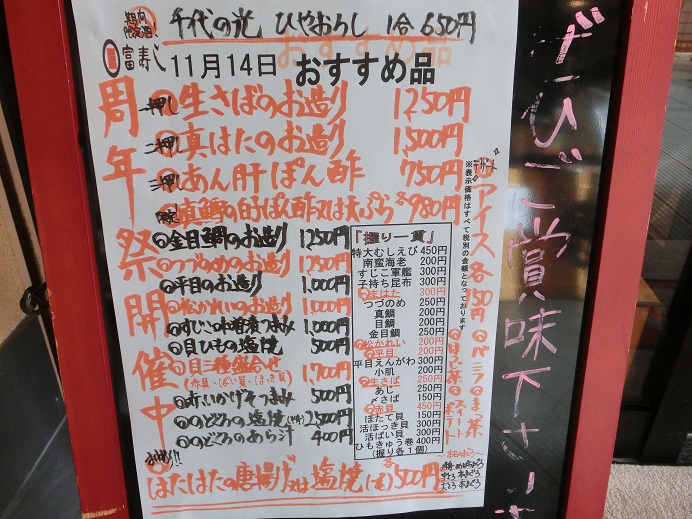 期間限定酒! 千代の光 ひやおろし 1合 650円
富寿し 11月14日 おすすめ品
周年祭開催中
一押し 生さばのお造り 1250円
二押し 真はたのお造り 1,500円
三押し あん肝ぽん酢 750円
真鱈の白子ぽん酢又は天ぷら 各980円
金目鯛のお造り 1250円
つづのめのお造り 1250円
平目のお造り 1,000円
松かれいのお造り 1000円
すじこの味噌漬つまみ 1,000円
貝ひもの塩焼 500円
貝三種盛合せ 1,700円
(赤貝・ばい貝・ほっき貝)
赤いかげそつまみ 500円
のどぐろの塩焼 2,800円
のどぐろのあら汁 400円
はたはたの唐揚げ又は塩焼 各500円
「握り一貫」
特大むしえび 450円
南蛮海老 200円
すじこ軍艦 300円
子持ち昆布 300円
真はた 300円
つづのめ 250円
真鯛 200円
目鯛 200円
金目鯛 250円
松かれい 200円
平目 200円
平目えんがわ 300円
小肌 200円
生さば 250円
あじ 250円
〆さば 150円
赤貝 450円
ほたて貝 150円
活ほっき貝 300円
活ばい貝 300円
ひもきゅう巻 400円
(握り各1個)
※表示価格はすべて税別の金額となっております
デザート アイス 各150円
バニラ
まっ茶
ほうじ茶
ぜひご賞味下さいませ